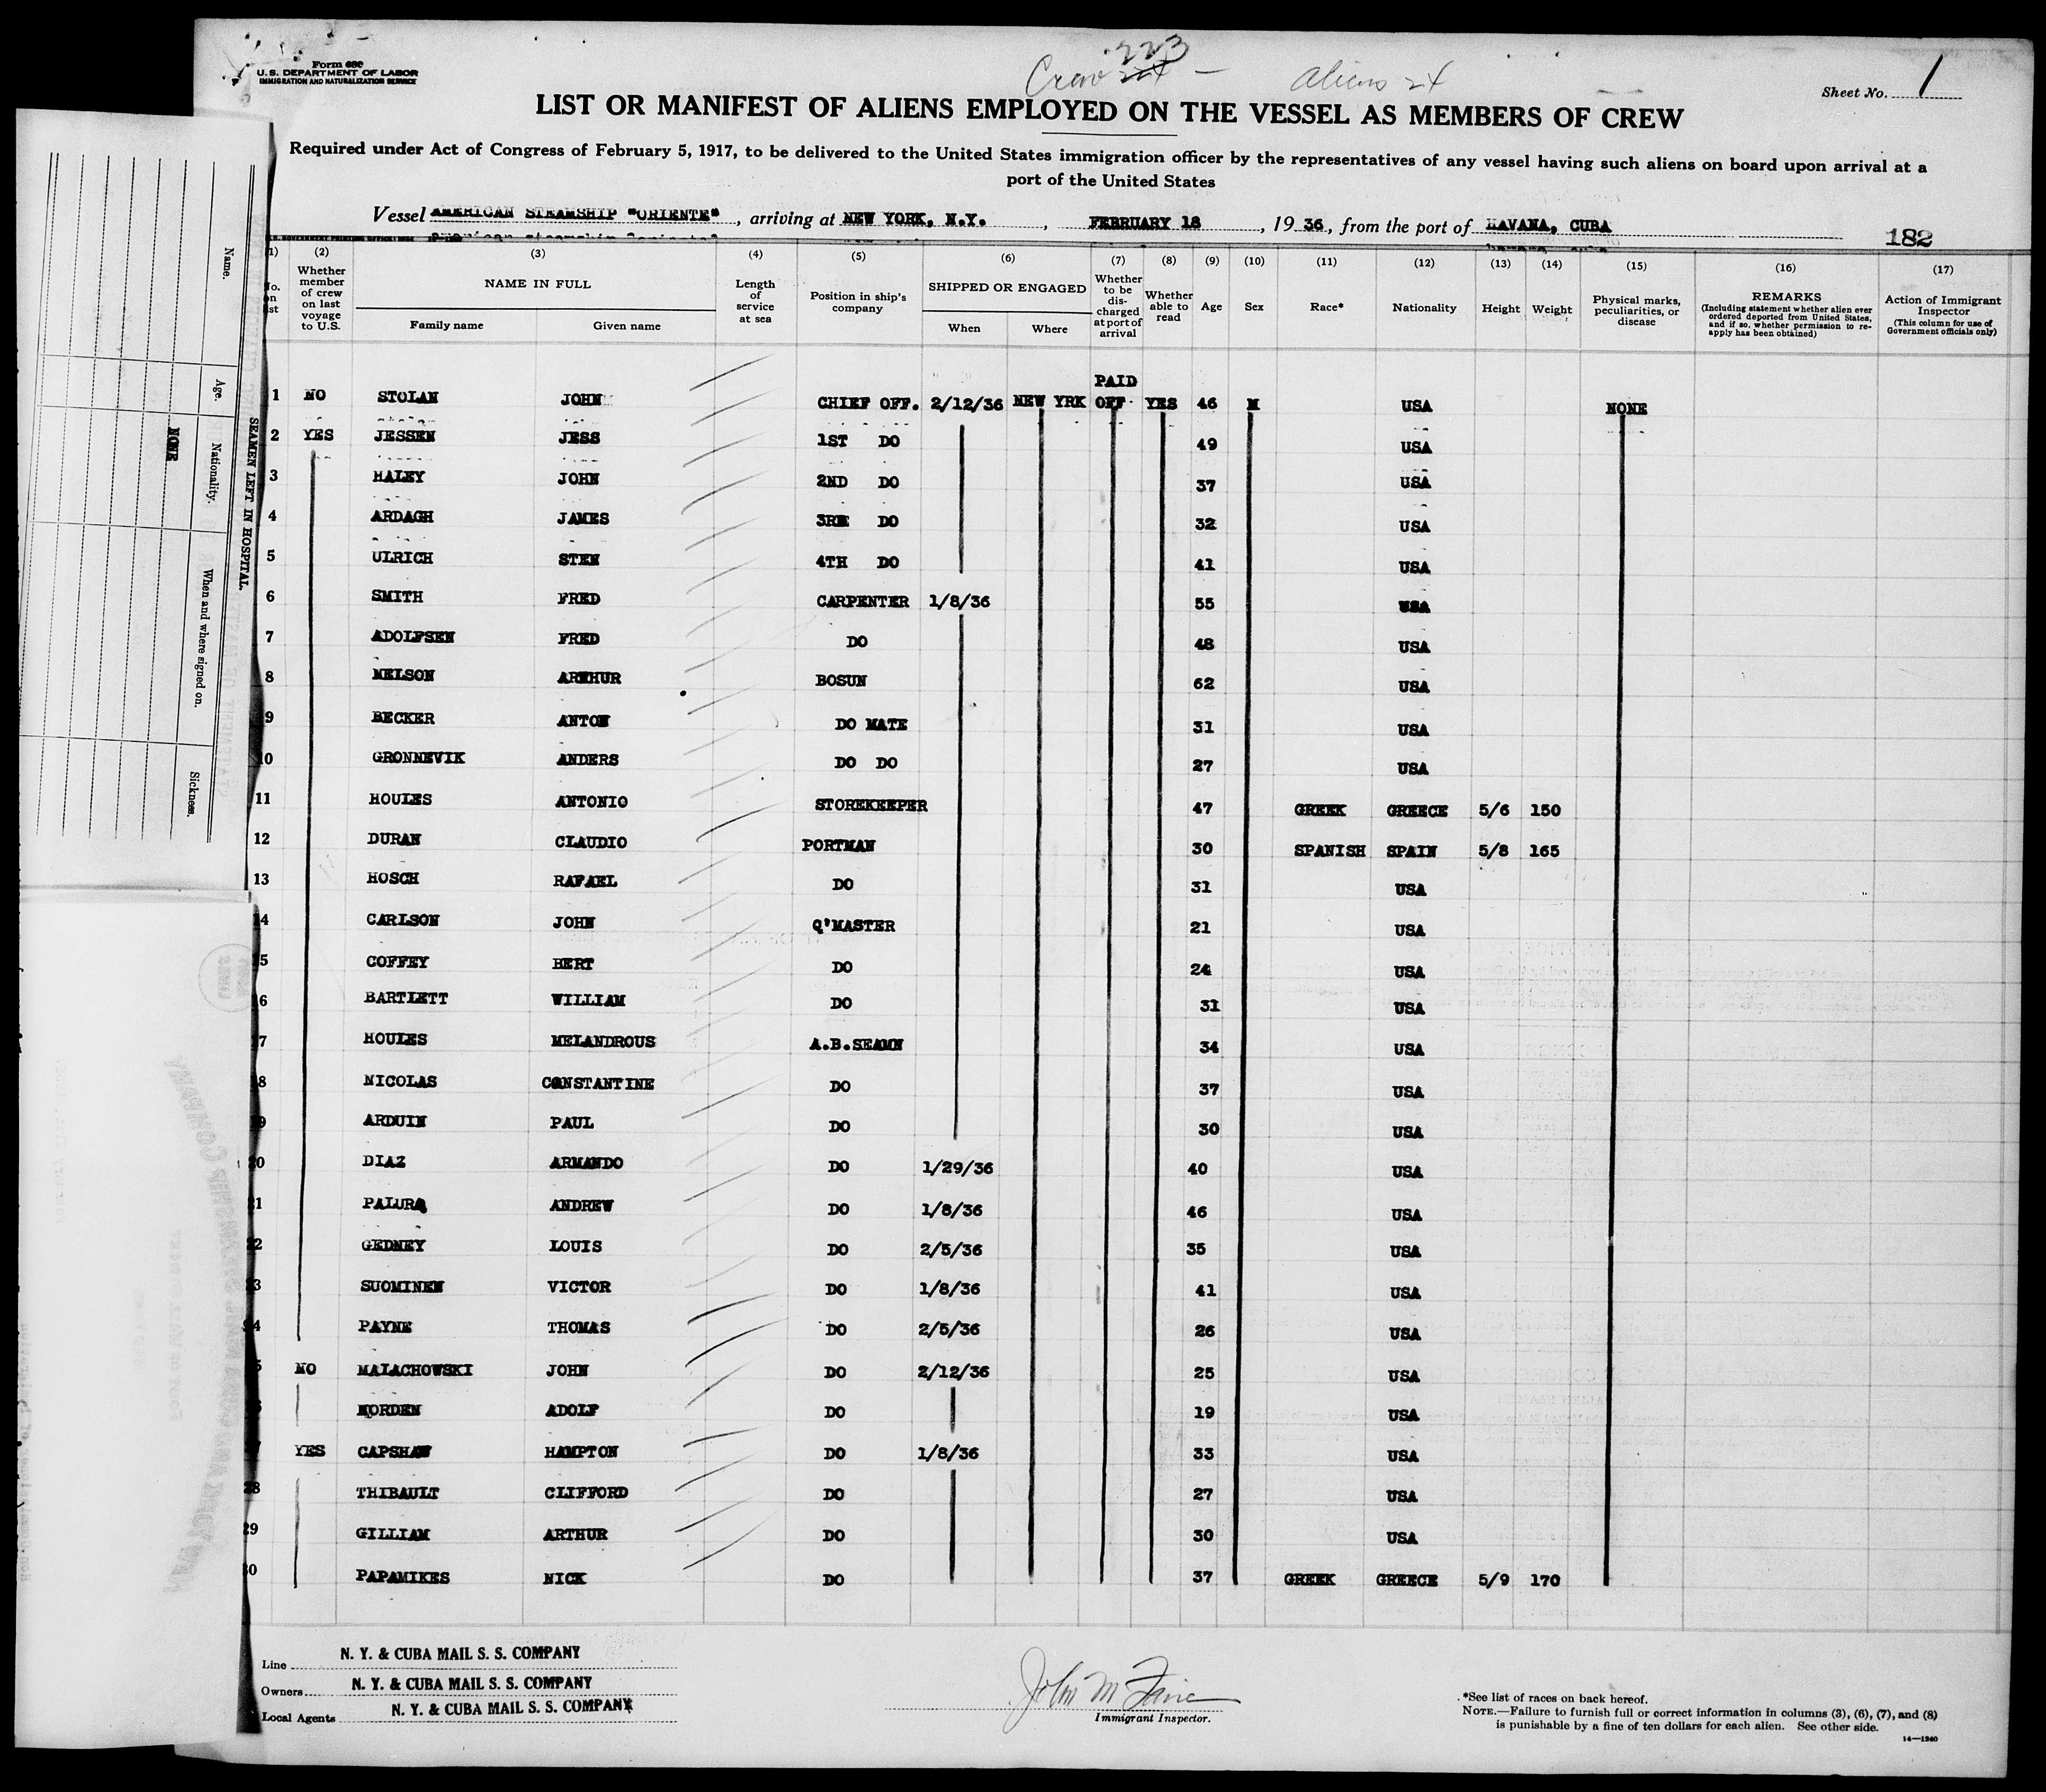 Form 680
U.S. DEPARTMENT OF LABOR
IMMIGRATION AND NATURALIZATION SERVICE
Crew 223 224 — aliens 24
Sheet No. 1
LIST OR MANIFEST OF ALIENS EMPLOYED ON THE VESSEL AS MEMBERS OF CREW
Required under Act of Congress of February 5, 1917, to be delivered to the United States immigration officer by the representatives of any vessel having such aliens on board upon arrival at a
port of the United States
Vessel AMERICAN STEAMSHIP "ORIENTE", arriving at NEW YORK, N.Y., FEBRUARY 18, 19 36, from the port of HAVANA, CUBA
182
(1) (2) (3) (4) (5) (6) (7) (8) (9) (10) (11) (12) (13) (14) (15) (16) (17)
No. on list
Whether member of crew on last voyage to U.S.
NAME IN FULL
Family name
Given name
Length of service at sea
Position in ship's company
SHIPPED OR ENGAGED
When
Where
Whether to be discharged at port of arrival
Whether able to read
Age
Sex
Race*
Nationality
Height
Weight
Physical marks, peculiarities, or disease
REMARKS
(Including statement whether alien ever ordered deported from United States, and if so, whether permission to re-apply has been obtained)
Action of Immigrant Inspector
(This column for use of Government officials only)
1 NO STOLAN JOHN CHIEF OFF. 2/12/36 NEW YRK PAID OFF YES 46 M USA NONE
2 YES JESSEN JESS 1ST DO 49 USA
3 HALEY JOHN 2ND DO 37 USA
4 ARDAGH JAMES 3RD DO 32 USA
5 ULRICH STEN 4TH DO 41 USA
6 SMITH FRED CARPENTER 1/8/36 55 USA
7 ADOLFSEN FRED DO 48 USA
8 NELSON ARTHUR BOSUN 62 USA
9 BECKER ANTON DO MATE 31 USA
10 GRONNEVIK ANDERS DO DO 27 USA
11 HOULES ANTONIO STOREKEEPER 47 GREEK GREECE 5/6 150
12 DURAN CLAUDIO PORTMAN 30 SPANISH SPAIN 5/8 165
13 HOSCH RAFAEL DO 31 USA
14 CARLSON JOHN Q'MASTER 21 USA
15 COFFEY BERT DO 24 USA
16 BARTLETT WILLIAM DO 31 USA
17 HOULES MELANDROUS A.B.SEAMN 34 USA
18 NICOLAS CONSTANTINE DO 37 USA
19 ARDUIN PAUL DO 30 USA
20 DIAZ ARMANDO DO 1/29/36 40 USA
21 PALURA ANDREW DO 1/8/36 46 USA
22 GEDNEY LOUIS DO 2/5/36 35 USA
23 SUOMINEN VICTOR DO 1/8/36 41 USA
24 PAYNE THOMAS DO 2/5/36 26 USA
5 NO MALACHOWSKI JOHN DO 2/12/36 25 USA
6 NORDEN ADOLF DO 19 USA
7 YES CAPSHAW HAMPTON DO 1/8/36 33 USA
28 THIBAULT CLIFFORD DO 27 USA
29 GILLIAM ARTHUR DO 30 USA
30 PAPAMIKES NICK DO 37 GREEK GREECE 5/9 170
Line N. Y. & CUBA MAIL S. S. COMPANY
Owners N. Y. & CUBA MAIL S. S. COMPANY
Local Agents N. Y. & CUBA MAIL S. S. COMPANY
Immigrant Inspector.
*See list of races on back hereof.
NOTE.—Failure to furnish full or correct information in columns (3), (6), (7), and (8)
is punishable by a fine of ten dollars for each alien. See other side.
14—1240
SEAMEN LEFT IN HOSPITAL.
Name.
Age.
Nationality.
When and where signed on.
Sickness.
NONE